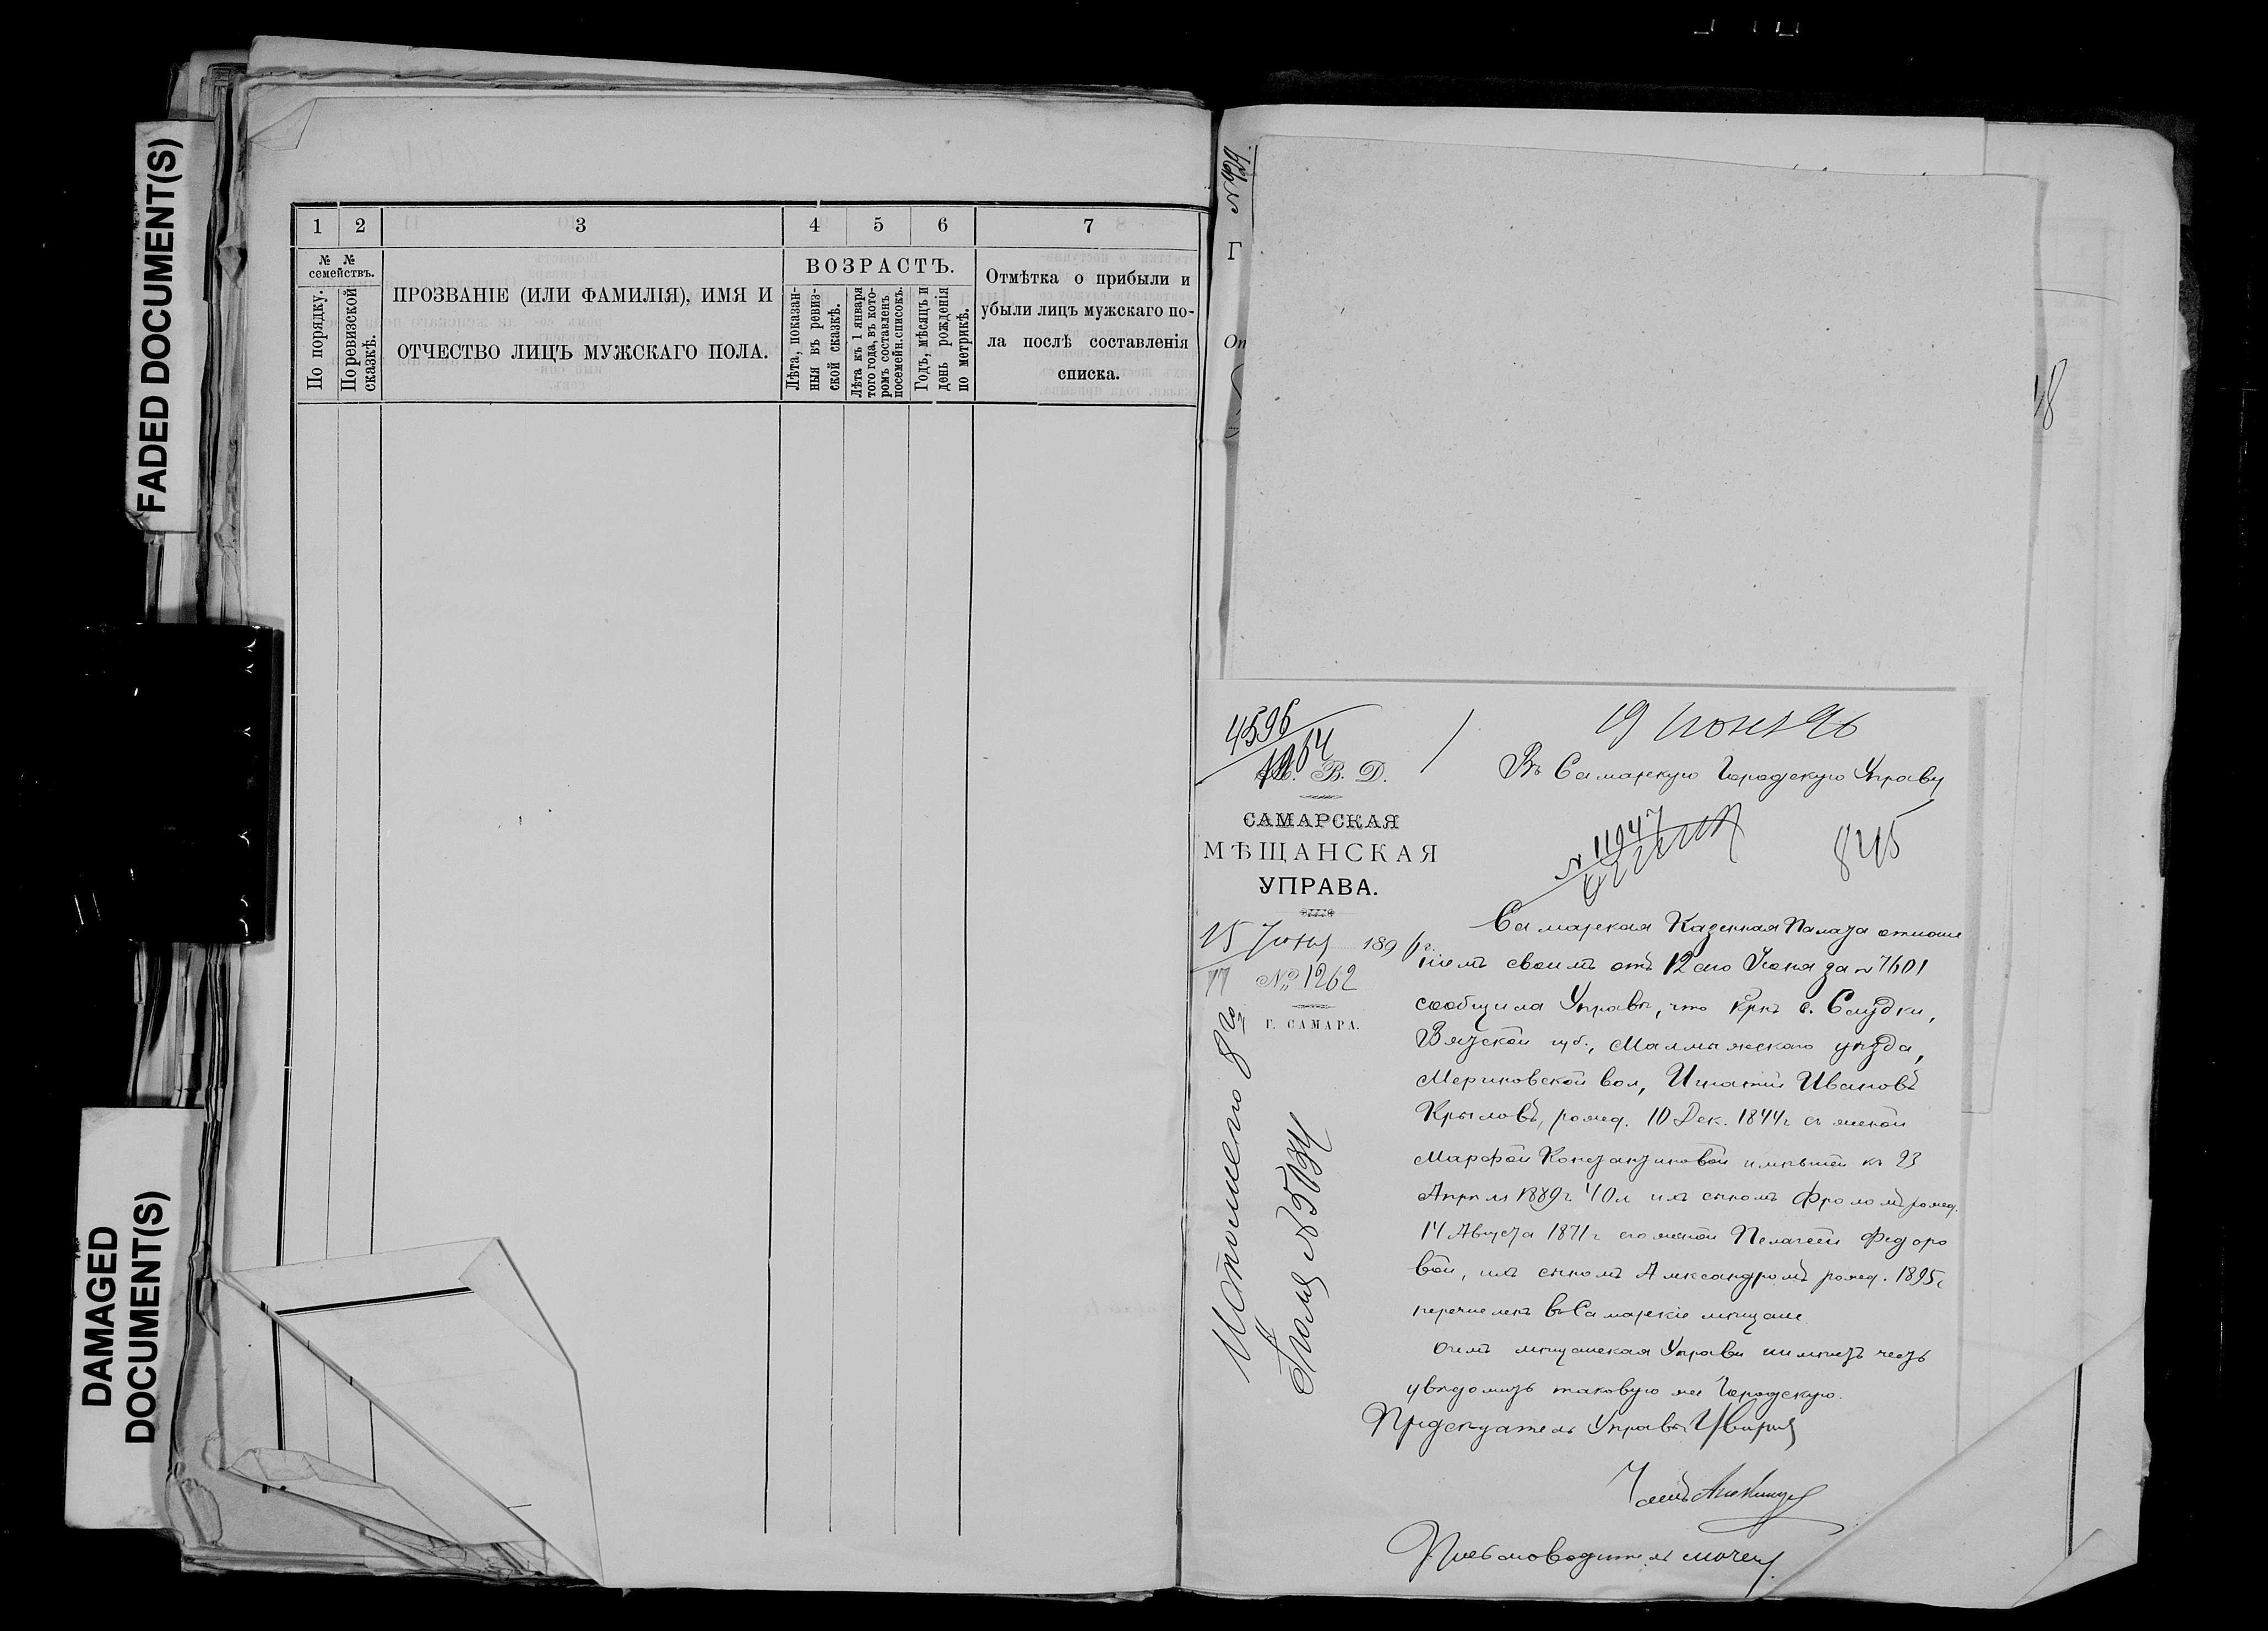 FADED DOCUMENT(S)
DAMAGED
DOCUMENT(S)
1 2 3 4 5 6 7
№ № семействъ.
По порядку.
По ревизской сказкѣ.
ПРОЗВАНІЕ (ИЛИ ФАМИЛІЯ), ИМЯ И
ОТЧЕСТВО ЛИЦЪ МУЖСКАГО ПОЛА.
ВОЗРАСТЪ.
Лѣта, показан-
ныя въ ревиз-
ской сказкѣ.
Лѣта къ 1 января
того года, въ кото-
ромъ составленъ
посемейн. списокъ.
Годъ, мѣсяцъ и
день рожденія
по метрикѣ.
Отмѣтка о прибыли и
убыли лицъ мужскаго по-
ла послѣ составленія
списка.
Г
Оп
4596
1064
В. Д.
САМАРСКАЯ
МѢЩАНСКАЯ
УПРАВА.
15 Іюня 1896 г.
№ 1262
Г. САМАРА.
19 июня 96
Въ Самарскую Городскую Управу
№ 11047
845
Самарская Казенная Палата отноше
ніемъ своимъ отъ 12 сего Іюня за № 7601
сообщила Управѣ, что крнъ с. Слудки,
Вятской губ., Малмыжскаго уѣзда,
Мериновской вол, Игнатій Ивановъ
Крыловъ, рожд. 10 Дек. 1844 г съ женой
Марфой Константиновой имѣвшей къ 23
Апрѣля 1889 г 40 л ихъ сыномъ Фроломъ рожд.
14 Августа 1871 г его женой Пелагеей Федоро
вой, ихъ сыномъ Александромъ рожд. 1895 г
перечисленъ въ Самарскіе мѣщане
О чемъ мѣщанская Управа имѣетъ честь
увѣдомить таковую же Городскую.
Предсѣдатель Управы
Членъ
Письмоводитель